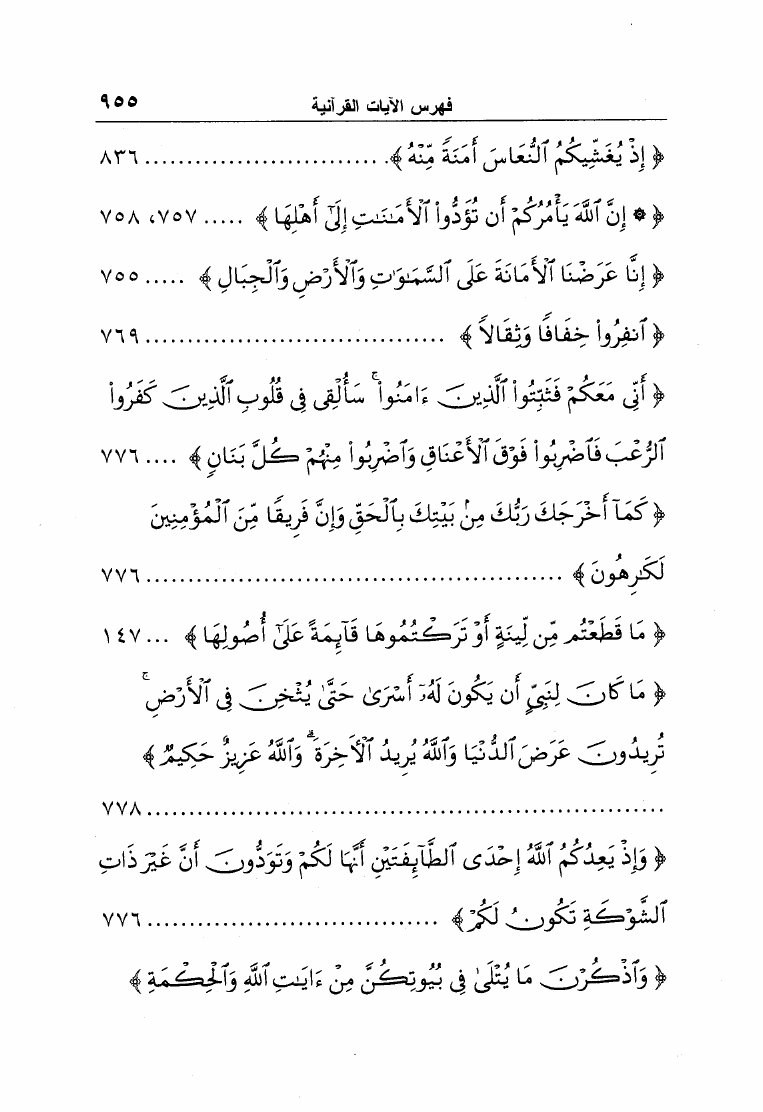 فهرس الآيات القرآنية ٩٥٥
﴿ إِذْ يُغَشِّيكُمُ ٱلنُّعَاسَ أَمَنَةً مِّنْهُ ﴾. ............................ ٨٣٦
﴿ ۞ إِنَّ ٱللَّهَ يَأْمُرُكُمْ أَن تُؤَدُّوا۟ ٱلْأَمَـٰنَـٰتِ إِلَىٰٓ أَهْلِهَا ﴾ ..... ٧٥٧، ٧٥٨
﴿ إِنَّا عَرَضْنَا ٱلْأَمَانَةَ عَلَى ٱلسَّمَـٰوَٰتِ وَٱلْأَرْضِ وَٱلْجِبَالِ ﴾ ..... ٧٥٥
﴿ ٱنفِرُوا۟ خِفَافًا وَثِقَالًا ﴾ .................................... ٧٦٩
﴿ أَنِّى مَعَكُمْ فَثَبِّتُوا۟ ٱلَّذِينَ ءَامَنُوا۟ ۚ سَأُلْقِى فِى قُلُوبِ ٱلَّذِينَ كَفَرُوا۟
ٱلرُّعْبَ فَٱضْرِبُوا۟ فَوْقَ ٱلْأَعْنَاقِ وَٱضْرِبُوا۟ مِنْهُمْ كُلَّ بَنَانٍ ﴾ .... ٧٧٦
﴿ كَمَآ أَخْرَجَكَ رَبُّكَ مِنۢ بَيْتِكَ بِٱلْحَقِّ وَإِنَّ فَرِيقًا مِّنَ ٱلْمُؤْمِنِينَ
لَكَـٰرِهُونَ ﴾ .................................................. ٧٧٦
﴿ مَا قَطَعْتُم مِّن لِّينَةٍ أَوْ تَرَكْتُمُوهَا قَآئِمَةً عَلَىٰٓ أُصُولِهَا ﴾ ... ١٤٧
﴿ مَا كَانَ لِنَبِىٍّ أَن يَكُونَ لَهُۥٓ أَسْرَىٰ حَتَّىٰ يُثْخِنَ فِى ٱلْأَرْضِ ۚ
تُرِيدُونَ عَرَضَ ٱلدُّنْيَا وَٱللَّهُ يُرِيدُ ٱلْـَٔاخِرَةَ ۗ وَٱللَّهُ عَزِيزٌ حَكِيمٌ ﴾
.............................................................. ٧٧٨
﴿ وَإِذْ يَعِدُكُمُ ٱللَّهُ إِحْدَى ٱلطَّآئِفَتَيْنِ أَنَّهَا لَكُمْ وَتَوَدُّونَ أَنَّ غَيْرَ ذَاتِ
ٱلشَّوْكَةِ تَكُونُ لَكُمْ ﴾ ................................... ٧٧٦
﴿ وَٱذْكُرْنَ مَا يُتْلَىٰ فِى بُيُوتِكُنَّ مِنْ ءَايَـٰتِ ٱللَّهِ وَٱلْحِكْمَةِ ﴾